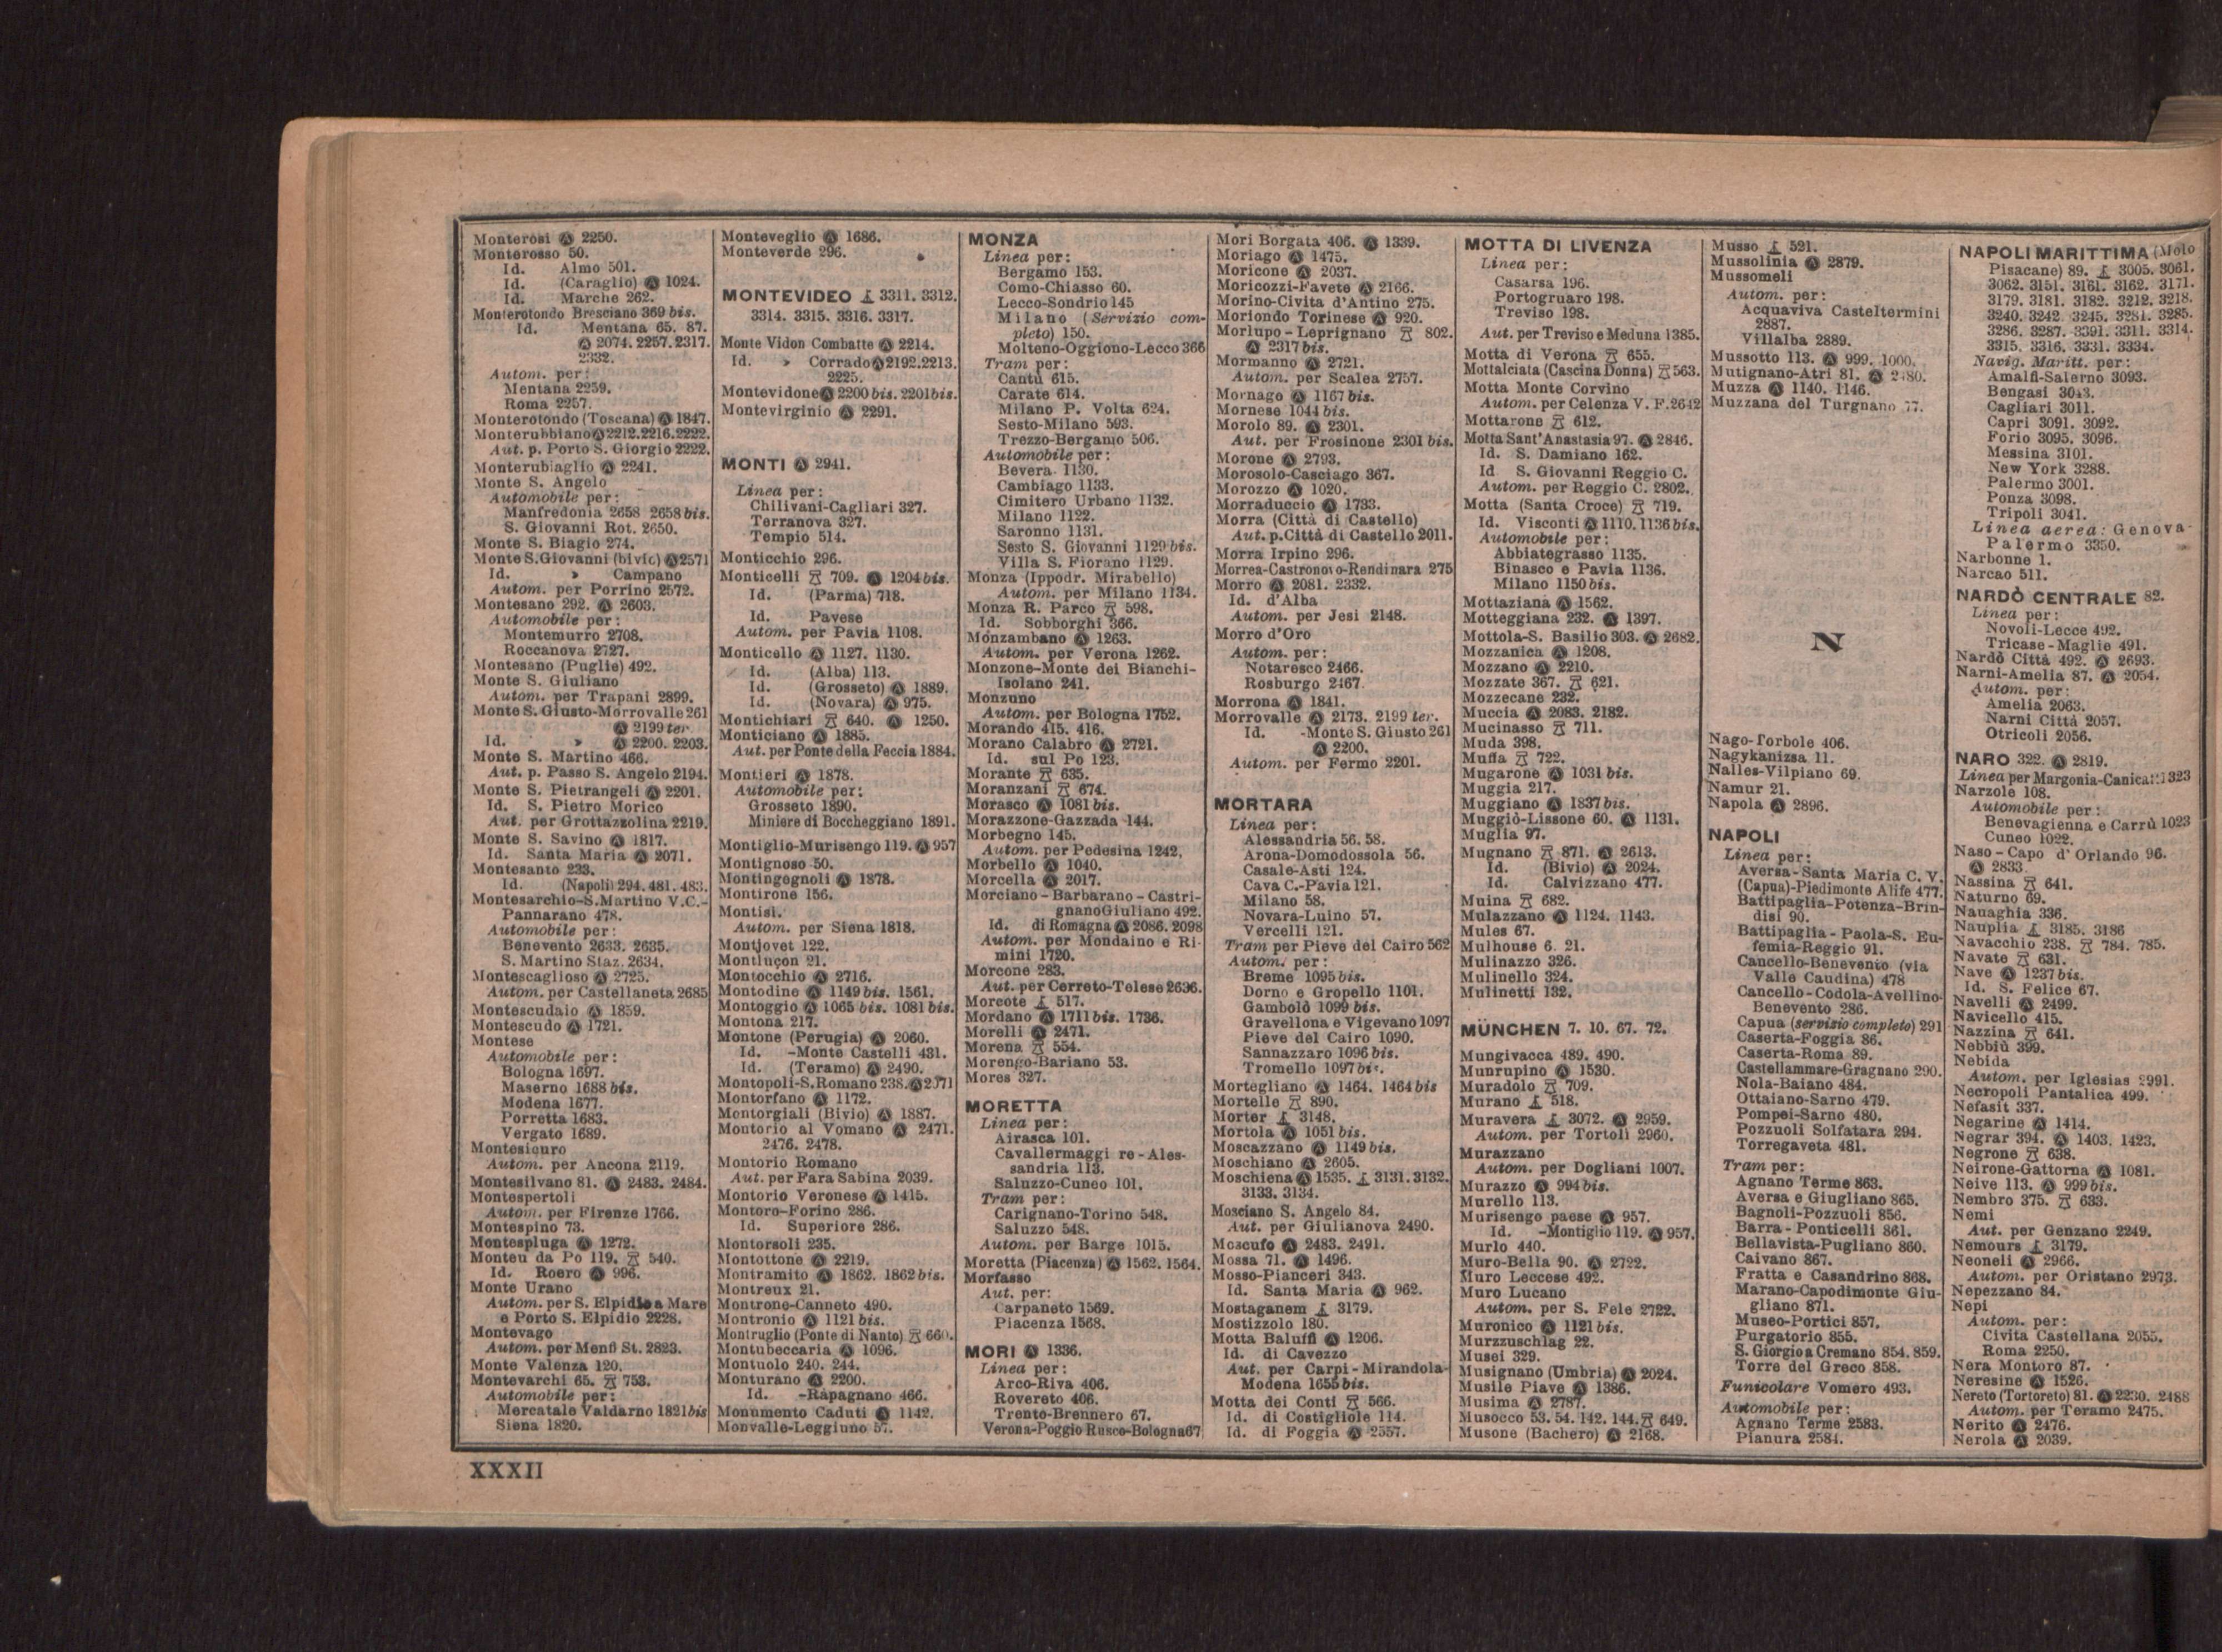 Monterosi Ⓐ 2250.
Monterosso 50.
Id. Almo 501.
Id. (Caraglio) Ⓐ 1024.
Id. Marche 262.
Monterotondo Bresciano 369 bis.
Id. Mentana 65. 87.
Ⓐ 2074. 2257. 2317.
2332.
Autom. per:
Mentana 2259.
Roma 2257.
Monterotondo (Toscana) Ⓐ 1847.
Monterubbiano Ⓐ 2212. 2216. 2222.
Aut. p. Porto S. Giorgio 2222.
Monterubiaglio Ⓐ 2241.
Monte S. Angelo
Automobile per:
Manfredonia 2658 2658 bis.
S. Giovanni Rot. 2650.
Monte S. Biagio 274.
Monte S. Giovanni (bivio) Ⓐ 2571
Id. » Campano
Autom. per Porrino 2572.
Montesano 292. Ⓐ 2603.
Automobile per:
Montemurro 2708.
Roccanova 2727.
Montesano (Puglie) 492.
Monte S. Giuliano
Autom. per Trapani 2899.
Monte S. Giusto-Morrovalle 261
Ⓐ 2199 ter.
Id. » Ⓐ 2200. 2203.
Monte S. Martino 466.
Aut. p. Passo S. Angelo 2194.
Monte S. Pietrangeli Ⓐ 2201.
Id. S. Pietro Morico
Aut. per Grottazzolina 2219.
Monte S. Savino Ⓐ 1817.
Id. Santa Maria Ⓐ 2071.
Montesanto 233.
Id. (Napoli) 294. 481. 483.
Montesarchio-S. Martino V.C.-
Pannarano 478.
Automobile per:
Benevento 2633. 2635.
S. Martino Staz. 2634.
Montescaglioso Ⓐ 2725.
Autom. per Castellaneta 2685
Montescudaio Ⓐ 1859.
Montescudo Ⓐ 1721.
Montese
Automobile per:
Bologna 1697.
Maserno 1688 bis.
Modena 1677.
Porretta 1683.
Vergato 1689.
Montesicuro
Autom. per Ancona 2119.
Montesilvano 81. Ⓐ 2483. 2484.
Montespertoli
Autom. per Firenze 1766.
Montespino 73.
Montespluga Ⓐ 1272.
Monteu da Po 119. 540.
Id. Roero Ⓐ 996.
Monte Urano
Autom. per S. Elpidio a Mare
e Porto S. Elpidio 2228.
Montevago
Autom. per Menfi St. 2823.
Monte Valenza 120.
Montevarchi 65. 753.
Automobile per:
Mercatale Valdarno 1821 bis
Siena 1820.
Monteveglio Ⓐ 1686.
Monteverde 296.
MONTEVIDEO 3311. 3312.
3314. 3315. 3316. 3317.
Monte Vidon Combatte Ⓐ 2214.
Id. » Corrado Ⓐ 2192. 2213.
2225.
Montevidone Ⓐ 2200 bis. 2201 bis.
Montevirginio Ⓐ 2291.
MONTI Ⓐ 2941.
Linea per:
Chilivani-Cagliari 327.
Terranova 327.
Tempio 514.
Monticchio 296.
Monticelli 709. Ⓐ 1204 bis.
Id. (Parma) 718.
Id. Pavese
Autom. per Pavia 1108.
Monticello Ⓐ 1127. 1130.
Id. (Alba) 113.
Id. (Grosseto) Ⓐ 1889.
Id. (Novara) Ⓐ 975.
Montichiari 640. Ⓐ 1250.
Monticiano Ⓐ 1885.
Aut. per Ponte della Feccia 1884.
Montieri Ⓐ 1878.
Automobile per:
Grosseto 1890.
Miniere di Boccheggiano 1891.
Montiglio-Murisengo 119. Ⓐ 957
Montignoso 50.
Montingegnoli Ⓐ 1878.
Montirone 156.
Montisi.
Autom. per Siena 1818.
Montjovet 122.
Montluçon 21.
Montocchio Ⓐ 2716.
Montodine Ⓐ 1149 bis. 1561.
Montoggio Ⓐ 1065 bis. 1081 bis.
Montona 217.
Montone (Perugia) Ⓐ 2060.
Id. -Monte Castelli 431.
Id. (Teramo) Ⓐ 2490.
Montopoli-S. Romano 238. Ⓐ 2071
Montorfano Ⓐ 1172.
Montorgiali (Bivio) Ⓐ 1887.
Montorio al Vomano Ⓐ 2471.
2476. 2478.
Montorio Romano
Aut. per Fara Sabina 2039.
Montorio Veronese Ⓐ 1415.
Montoro-Forino 286.
Id. Superiore 286.
Montorsoli 235.
Montottone Ⓐ 2219.
Montramito Ⓐ 1862. 1862 bis.
Montreux 21.
Montrone-Canneto 490.
Montronio Ⓐ 1121 bis.
Montruglio (Ponte di Nanto) 660.
Montubeccaria Ⓐ 1096.
Montuolo 240. 244.
Monturano Ⓐ 2200.
Id. -Rapagnano 466.
Monumento Caduti Ⓐ 1142.
Monvalle-Leggiuno 57.
MONZA
Linea per:
Bergamo 153.
Como-Chiasso 60.
Lecco-Sondrio 145
Milano (Servizio com-
pleto) 150.
Molteno-Oggiono-Lecco 366
Tram per:
Cantù 615.
Carate 614.
Milano P. Volta 624.
Sesto-Milano 593.
Trezzo-Bergamo 506.
Automobile per:
Bevera 1130.
Cambiago 1133.
Cimitero Urbano 1132.
Milano 1122.
Saronno 1131.
Sesto S. Giovanni 1129 bis.
Villa S. Fiorano 1129.
Monza (Ippodr. Mirabello)
Autom. per Milano 1134.
Monza R. Parco 598.
Id. Sobborghi 366.
Monzambano Ⓐ 1263.
Autom. per Verona 1262.
Monzone-Monte dei Bianchi-
Isolano 241.
Monzuno
Autom. per Bologna 1752.
Morando 415. 416.
Morano Calabro Ⓐ 2721.
Id. sul Po 123.
Morante 635.
Moranzani 674.
Morasco Ⓐ 1081 bis.
Morazzone-Gazzada 144.
Morbegno 145.
Autom. per Pedesina 1242.
Morbello Ⓐ 1040.
Morcella Ⓐ 2017.
Morciano - Barbarano - Castri-
gnano Giuliano 492.
Id. di Romagna Ⓐ 2086. 2098
Autom. per Mondaino e Ri-
mini 1720.
Morcone 283.
Aut. per Cerreto-Telese 2636.
Morcote 517.
Mordano Ⓐ 1711 bis. 1736.
Morelli Ⓐ 2471.
Morena 554.
Morengo-Bariano 53.
Mores 327.
MORETTA
Linea per:
Airasca 101.
Cavallermaggiore - Ales-
sandria 113.
Saluzzo-Cuneo 101.
Tram per:
Carignano-Torino 548.
Saluzzo 548.
Autom. per Barge 1015.
Moretta (Piacenza) Ⓐ 1562. 1564.
Morfasso
Aut. per:
Carpaneto 1569.
Piacenza 1568.
MORI Ⓐ 1336.
Linea per:
Arco-Riva 406.
Rovereto 406.
Trento-Brennero 67.
Verona-Poggio Rusco-Bologna 67
Mori Borgata 406. Ⓐ 1339.
Moriago Ⓐ 1475.
Moricone Ⓐ 2037.
Moricozzi-Favete Ⓐ 2166.
Morino-Civita d'Antino 275.
Moriondo Torinese Ⓐ 920.
Morlupo-Leprignano 802.
Ⓐ 2317 bis.
Mormanno Ⓐ 2721.
Autom. per Scalea 2757.
Mornago Ⓐ 1167 bis.
Mornese 1044 bis.
Morolo 89. Ⓐ 2301.
Aut. per Frosinone 2301 bis.
Morone Ⓐ 2793.
Morosolo-Casciago 367.
Morozzo Ⓐ 1020.
Morraduccio Ⓐ 1733.
Morra (Città di Castello)
Aut. p. Città di Castello 2011.
Morra Irpino 296.
Morrea-Castronovo-Rendinara 275
Morro Ⓐ 2081. 2332.
Id. d'Alba
Autom. per Jesi 2148.
Morro d'Oro
Autom. per:
Notaresco 2466.
Rosburgo 2467.
Morrona Ⓐ 1841.
Morrovalle Ⓐ 2173. 2199 ter.
Id. -Monte S. Giusto 261
Ⓐ 2200.
Autom. per Fermo 2201.
MORTARA
Linea per:
Alessandria 56. 58.
Arona-Domodossola 56.
Casale-Asti 124.
Cava C.-Pavia 121.
Milano 58.
Novara-Luino 57.
Vercelli 121.
Tram per Pieve del Cairo 562
Autom. per:
Breme 1095 bis.
Dorno e Gropello 1101.
Gambolò 1099 bis.
Gravellona e Vigevano 1097
Pieve del Cairo 1090.
Sannazzaro 1096 bis.
Tromello 1097 bis.
Mortegliano Ⓐ 1464. 1464 bis
Mortelle 890.
Morter 3148.
Mortola Ⓐ 1051 bis.
Moscazzano Ⓐ 1149 bis.
Moschiano Ⓐ 2605.
Moschiena Ⓐ 1535. 3131. 3132.
3133. 3134.
Mosciano S. Angelo 84.
Aut. per Giulianova 2490.
Moscufo Ⓐ 2483. 2491.
Mossa 71. Ⓐ 1496.
Mosso-Pianceri 343.
Id. Santa Maria Ⓐ 962.
Mostaganem 3179.
Mostizzolo 180.
Motta Baluffi Ⓐ 1206.
Id. di Cavezzo
Aut. per Carpi-Mirandola-
Modena 1655 bis.
Motta dei Conti 566.
Id. di Costigliole 114.
Id. di Foggia Ⓐ 2557.
MOTTA DI LIVENZA
Linea per:
Casarsa 196.
Portogruaro 198.
Treviso 198.
Aut. per Treviso e Meduna 1385.
Motta di Verona 655.
Mottalciata (Cascina Donna) 563.
Motta Monte Corvino
Autom. per Celenza V. F. 2642
Mottarone 612.
Motta Sant'Anastasia 97. Ⓐ 2846.
Id. S. Damiano 162.
Id S. Giovanni Reggio C.
Autom. per Reggio C. 2802.
Motta (Santa Croce) 719.
Id. Visconti Ⓐ 1110. 1136 bis.
Automobile per:
Abbiategrasso 1135.
Binasco e Pavia 1136.
Milano 1150 bis.
Mottaziana Ⓐ 1562.
Motteggiana 232. Ⓐ 1397.
Mottola-S. Basilio 303. Ⓐ 2682.
Mozzanica Ⓐ 1208.
Mozzano Ⓐ 2210.
Mozzate 367. 621.
Mozzecane 232.
Muccia Ⓐ 2083. 2182.
Mucinasso 711.
Muda 398.
Muffa 722.
Mugarone Ⓐ 1031 bis.
Muggia 217.
Muggiano Ⓐ 1837 bis.
Muggiò-Lissone 60. Ⓐ 1131.
Muglia 97.
Mugnano 871. Ⓐ 2613.
Id. (Bivio) Ⓐ 2024.
Id. Calvizzano 477.
Muina 682.
Mulazzano Ⓐ 1124. 1143.
Mules 67.
Mulhouse 6. 21.
Mulinazzo 326.
Mulinello 324.
Mulinetti 132.
MÜNCHEN 7. 10. 67. 72.
Mungivacca 489. 490.
Munrupino Ⓐ 1530.
Muradolo 709.
Murano 518.
Muravera 3072. Ⓐ 2959.
Autom. per Tortolì 2960.
Murazzano
Autom. per Dogliani 1007.
Murazzo Ⓐ 994 bis.
Murello 113.
Murisengo paese Ⓐ 957.
Id. -Montiglio 119. Ⓐ 957.
Murlo 440.
Muro-Bella 90. Ⓐ 2722.
Muro Leccese 492.
Muro Lucano
Autom. per S. Fele 2722.
Muronico Ⓐ 1121 bis.
Murzzuschlag 22.
Musei 329.
Musignano (Umbria) Ⓐ 2024.
Musile Piave Ⓐ 1386.
Musima Ⓐ 2787.
Musocco 53. 54. 142. 144. 649.
Musone (Bachero) Ⓐ 2168.
Musso 521.
Mussolinia Ⓐ 2879.
Mussomeli
Autom. per:
Acquaviva Casteltermini
2887.
Villalba 2889.
Mussotto 113. Ⓐ 999. 1000.
Mutignano-Atri 81. Ⓐ 2480.
Muzza Ⓐ 1140. 1146.
Muzzana del Turgnano 77.
N
Nago-Torbole 406.
Nagykanizsa 11.
Nalles-Vilpiano 69.
Namur 21.
Napola Ⓐ 2896.
NAPOLI
Linea per:
Aversa-Santa Maria C. V.
(Capua)-Piedimonte Alife 477.
Battipaglia-Potenza-Brin-
disi 90.
Battipaglia-Paola-S. Eu-
femia-Reggio 91.
Cancello-Benevento (via
Valle Caudina) 478
Cancello-Codola-Avellino-
Benevento 286.
Capua (servizio completo) 291
Caserta-Foggia 86.
Caserta-Roma 89.
Castellammare-Gragnano 290.
Nola-Baiano 484.
Ottaiano-Sarno 479.
Pompei-Sarno 480.
Pozzuoli Solfatara 294.
Torregaveta 481.
Tram per:
Agnano Terme 863.
Aversa e Giugliano 865.
Bagnoli-Pozzuoli 856.
Barra - Ponticelli 861.
Bellavista-Pugliano 860.
Caivano 867.
Fratta e Casandrino 868.
Marano-Capodimonte Giu-
gliano 871.
Museo-Portici 857.
Purgatorio 855.
S. Giorgio a Cremano 854. 859.
Torre del Greco 858.
Funicolare Vomero 493.
Automobile per:
Agnano Terme 2583.
Pianura 2584.
NAPOLI MARITTIMA (Molo
Pisacane) 89. 3005. 3061.
3062. 3151. 3161. 3162. 3171.
3179. 3181. 3182. 3212. 3218.
3240. 3242. 3245. 3281. 3285.
3286. 3287. 3391. 3311. 3314.
3315. 3316. 3331. 3334.
Navig. Maritt. per:
Amalfi-Salerno 3093.
Bengasi 3043.
Cagliari 3011.
Capri 3091. 3092.
Forio 3095. 3096.
Messina 3101.
New York 3288.
Palermo 3001.
Ponza 3098.
Tripoli 3041.
Linea aerea: Genova-
Palermo 3350.
Narbonne 1.
Narcao 511.
NARDÒ CENTRALE 82.
Linea per:
Novoli-Lecce 492.
Tricase-Maglie 491.
Nardò Città 492. Ⓐ 2693.
Narni-Amelia 87. Ⓐ 2054.
Autom. per:
Amelia 2063.
Narni Città 2057.
Otricoli 2056.
NARO 322. Ⓐ 2819.
Linea per Margonia-Canicattì 323
Narzole 108.
Automobile per:
Benevagienna e Carrù 1023
Cuneo 1022.
Naso - Capo d'Orlando 96.
Ⓐ 2833.
Nassina 641.
Naturno 69.
Nauaghia 336.
Nauplia 3185. 3186
Navacchio 238. 784. 785.
Navate 631.
Nave Ⓐ 1237 bis.
Id. S. Felice 67.
Navelli Ⓐ 2499.
Navicello 415.
Nazzina 641.
Nebbiù 399.
Nebida
Autom. per Iglesias 2991.
Necropoli Pantalica 499.
Nefasit 337.
Negarine Ⓐ 1414.
Negrar 394. Ⓐ 1403. 1423.
Negrone 638.
Neirone-Gattorna Ⓐ 1081.
Neive 113. Ⓐ 999 bis.
Nembro 375. 633.
Nemi
Aut. per Genzano 2249.
Nemours 3179.
Neoneli Ⓐ 2966.
Autom. per Oristano 2973.
Nepezzano 84.
Nepi
Autom. per:
Civita Castellana 2055.
Roma 2250.
Nera Montoro 87.
Neresine Ⓐ 1526.
Nereto (Tortoreto) 81. Ⓐ 2230. 2488
Autom. per Teramo 2475.
Nerito Ⓐ 2476.
Nerola Ⓐ 2039.
XXXII